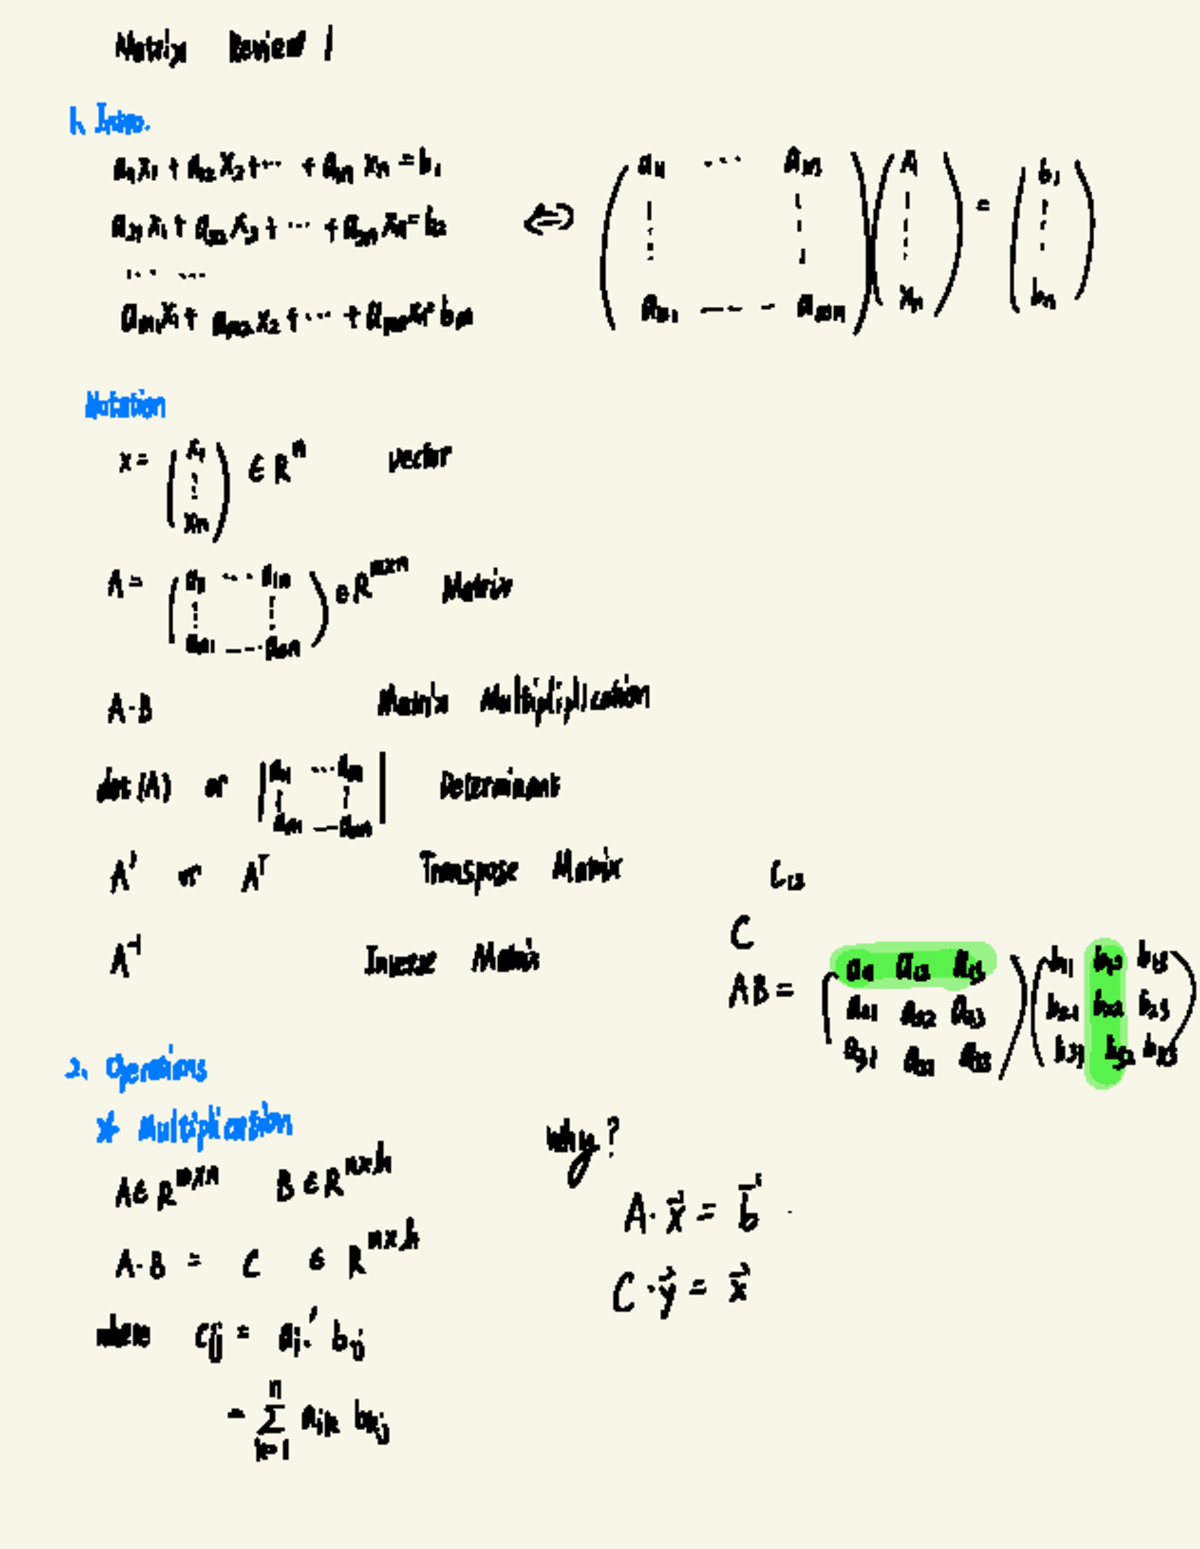 Matrix Review 1
1. Intro.
a₁₁x₁ + a₁₂x₂ + ⋯ + a₁ₙ xₙ = b₁
a₂₁x₁ + a₂₂x₂ + ⋯ + a₂ₙxₙ = b₂
⋯ ⋯
aₘ₁x₁ + aₘ₂x₂ + ⋯ + aₘₙxₙ = bₘ
⇔
( a₁₁ ⋯ a₁ₙ ⋮ ⋮ aₘ₁ ⋯ aₘₙ ) ( x₁ ⋮ xₙ ) = ( b₁ ⋮ bₙ )
Notation
x = ( x₁ ⋮ xₙ ) ∈ Rⁿ vector
A = ( a₁₁ ⋯ a₁ₙ ⋮ ⋮ aₘ₁ ⋯ aₘₙ ) ∈ Rᵐˣⁿ Matrix
A·B Matrix Multipliplication
det(A) or | a₁₁ ⋯ a₁ₙ ⋮ ⋮ aₙ₁ ⋯ aₙₙ | Determinant
A' or Aᵀ Transpose Matrix
A⁻¹ Inverse Matrix
C₁₂
C
AB = ( a₁₁ a₁₂ a₁₃ ) ( b₁₁ b₁₂ b₁₃ )
a₂₁ a₂₂ a₂₃ b₂₁ b₂₂ b₂₃
a₃₁ a₃₂ a₃₃ b₃₁ b₃₂ b₃₃
2. Operations
* Multiplication
A ∈ Rᵐˣⁿ B ∈ Rⁿˣʰ
A·B = C ∈ Rᵐˣʰ
where cᵢⱼ = aᵢ.' b.ⱼ
= Σₖ₌₁ⁿ aᵢₖ bₖⱼ
Why?
A·x⃗ = b⃗
C·y⃗ = x⃗